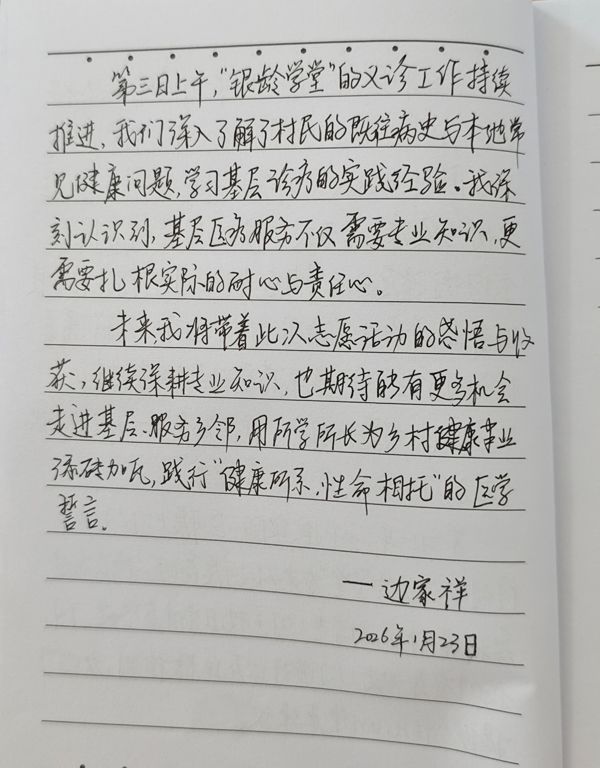 第三日上午，“银龄学堂”的义诊工作持续
推进，我们深入了解了村民的既往病史与本地常
见健康问题，学习基层诊疗的实践经验。我深
刻认识到，基层医疗服务不仅需要专业知识，更
需要扎根实际的耐心与责任心。
未来我将带着此次志愿活动的感悟与收
获，继续深耕专业知识，也期待能有更多机会
走进基层、服务乡邻，用所学所长为乡村健康事业
添砖加瓦，践行“健康所系，性命相托”的医学
誓言。
——边家祥
2026年1月23日